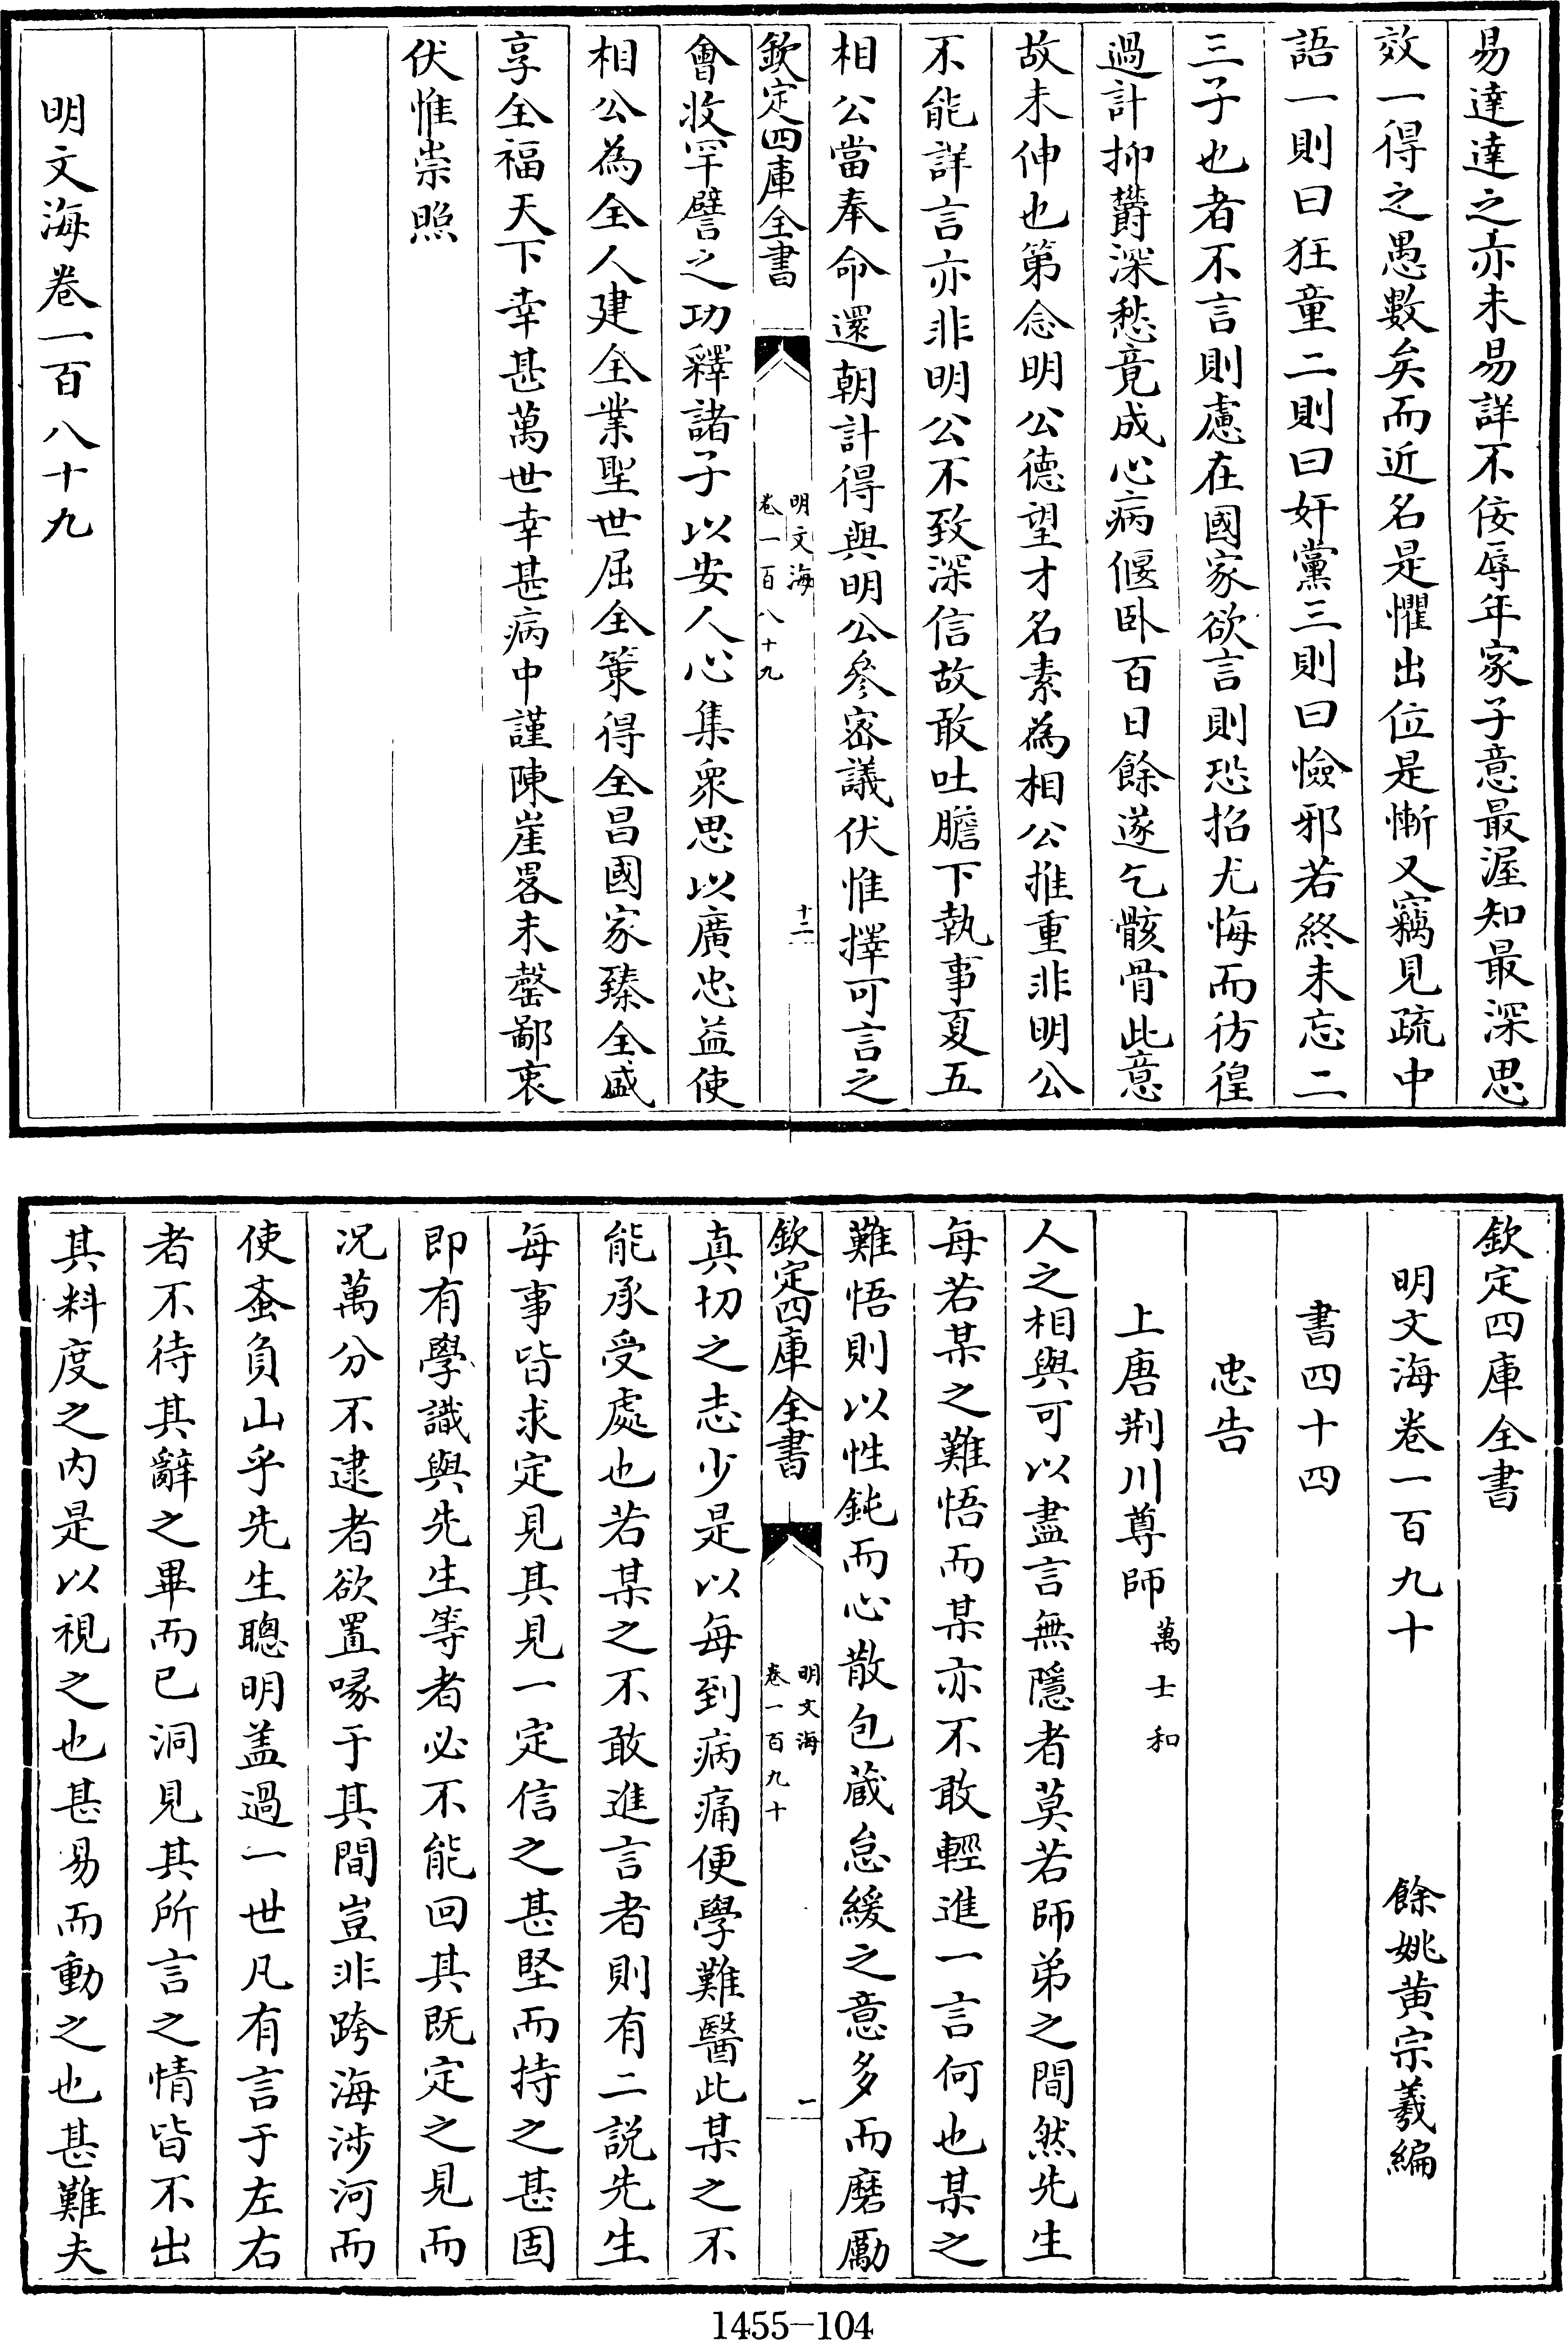 易達達之亦未易詳不佞辱年家子意最渥知最深思
效一得之愚數矣而近名是懼出位是慚又竊見疏中
語一則曰狂童二則曰奸黨三則曰憸邪若終未忘二
三子也者不言則慮在國家欲言則恐招尤悔而彷徨
過計抑鬱深愁竟成心病偃卧百日餘遂乞骸骨此意
故未伸也第念明公德望才名素為相公推重非明公
不能詳言亦非明公不致深信故敢吐膽下執事夏五
相公當奉命還朝計得與明公參密議伏惟擇可言之
欽定四庫全書
明文海
卷一百八十九
十二
會收罕譬之功釋諸子以安人心集衆思以廣忠益使
相公為全人建全業聖世屈全策得全昌國家臻全盛
享全福天下幸甚萬世幸甚病中謹陳崖畧未罄鄙衷
伏惟崇照
明文海卷一百八十九
欽定四庫全書
明文海卷一百九十
餘姚黄宗羲編
書四十四
忠告
上唐荆川尊師 萬士和
人之相與可以盡言無隱者莫若師弟之間然先生
每若某之難悟而某亦不敢輕進一言何也某之
難悟則以性鈍而心散包蔵怠緩之意多而磨勵
欽定四庫全書
明文海
卷一百九十
一
真切之志少是以每到病痛便學難醫此某之不
能承受處也若某之不敢進言者則有二説先生
每事皆求定見其見一定信之甚堅而持之甚固
即有學識與先生等者必不能回其既定之見而
况萬分不逮者欲置喙于其間豈非跨海涉河而
使蚉負山乎先生聰明盖過一世凡有言于左右
者不待其辭之畢而已洞見其所言之情皆不出
其料度之内是以視之也甚易而動之也甚難夫
1455-104